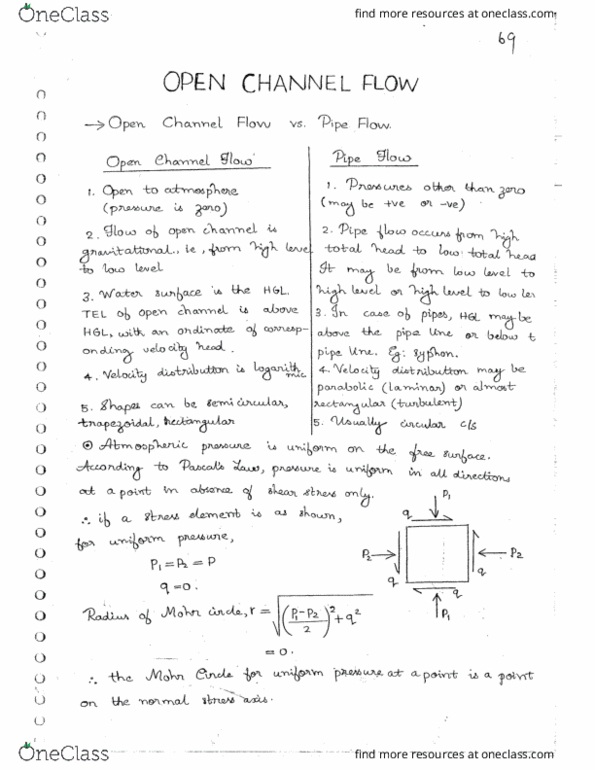 OneClass
find more resources at oneclass.com
69
OPEN CHANNEL FLOW
→ Open Channel Flow vs. Pipe Flow.
Open Channel Flow
1. Open to atmosphere
(pressure is zero)
2. Flow of open channel is
gravitational., ie, from high level
to low level
3. Water surface is the HGL.
TEL of open channel is above
HGL, with an ordinate of corresp-
onding velocity head.
4. Velocity distribution is logarithmic
5. Shapes can be semicircular,
trapezoidal, rectangular
Pipe Flow
1. Pressures other than zero
(may be +ve or -ve)
2. Pipe flow occurs from high
total head to low total head
It may be from low level to
high level or high level to low
3. In case of pipes, HGL may be
above the pipe line or below t
pipe line. Eg: Syphon.
4. Velocity distribution may be
parabolic (laminar) or almost
rectangular (turbulent)
5. Usually circular c/s
⊙ Atmospheric pressure is uniform on the free surface.
According to Pascal's Law, pressure is uniform in all directions
at a point in absence of shear stress only.
∴ if a stress element is as shown,
for uniform pressure,
P₁ = P₂ = P
q = 0.
Radius of Mohr circle, r = √((P₁-P₂)/2)² + q²
= 0.
P₁
q
P₂
P₂
q
q
P₁
∴ the Mohr Circle for uniform pressure at a point is a point
on the normal stress axis.
OneClass
find more resources at oneclass.com